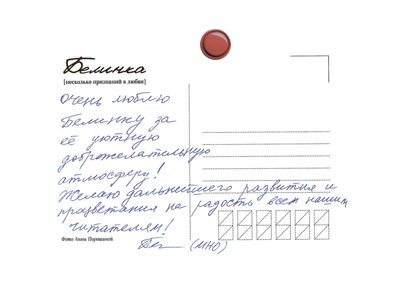 Белинка
[несколько признаний в любви]
очень люблю
Белинку за
её уютную
доброжелательную
атмосферу!
Желаю дальнейшего развития и
процветания на радость всем нашим
читателям!
(МНО)
Фото Анны Порошиной